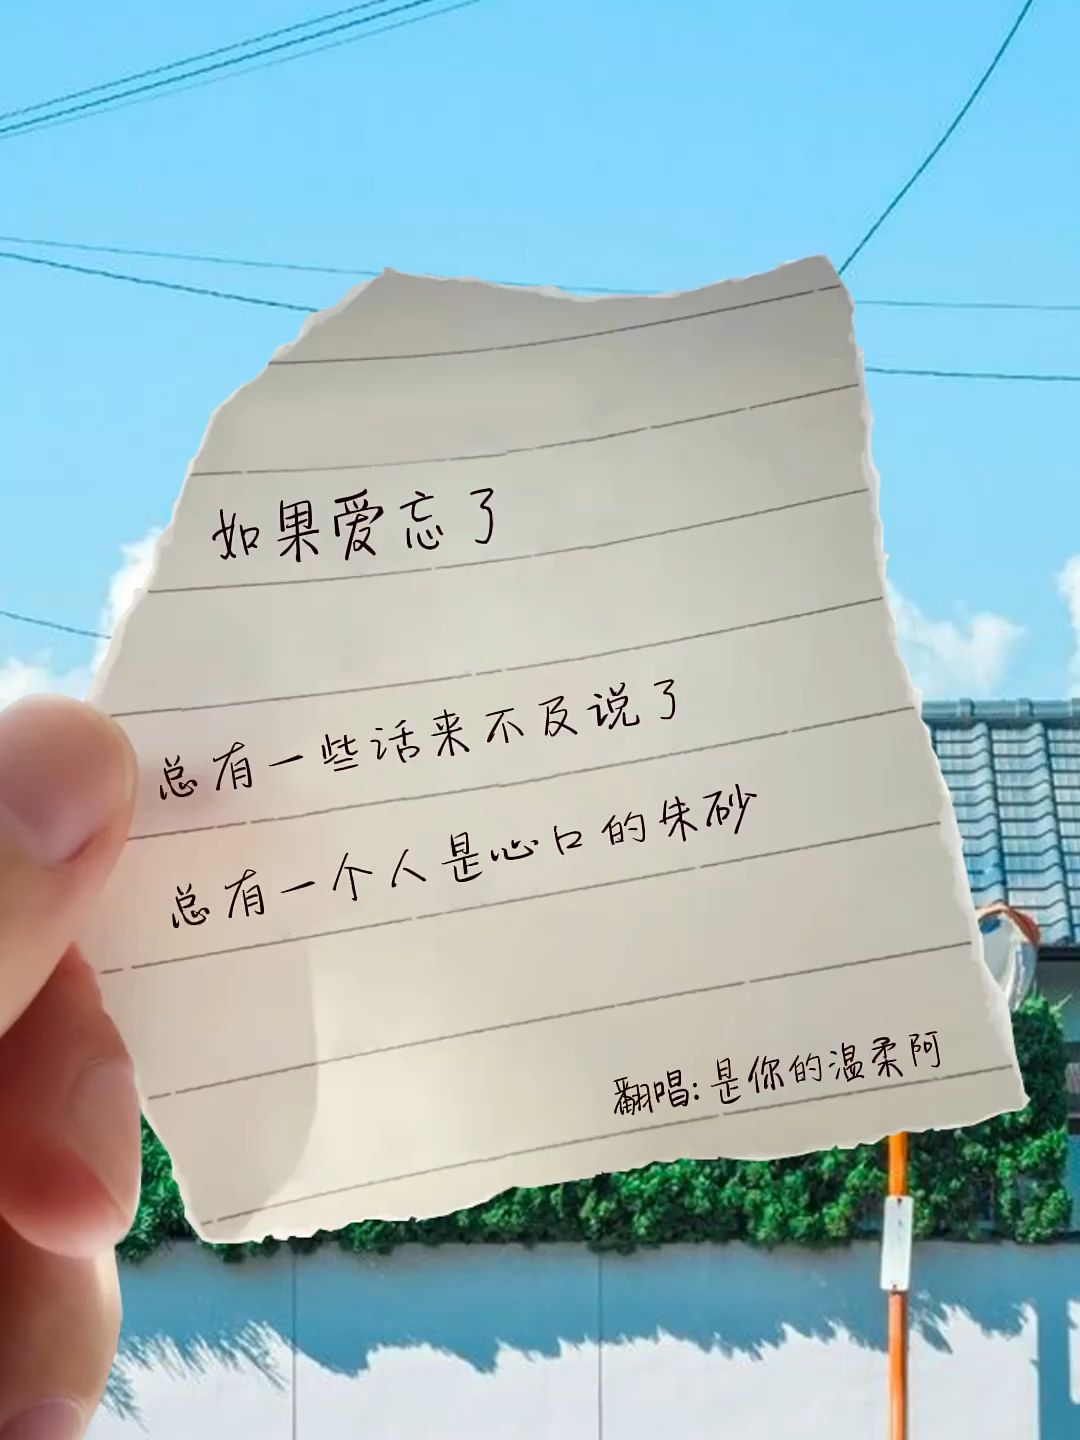 如果爱忘了
总有一些话来不及说了
总有一个人是心口的朱砂
翻唱:是你的温柔阿